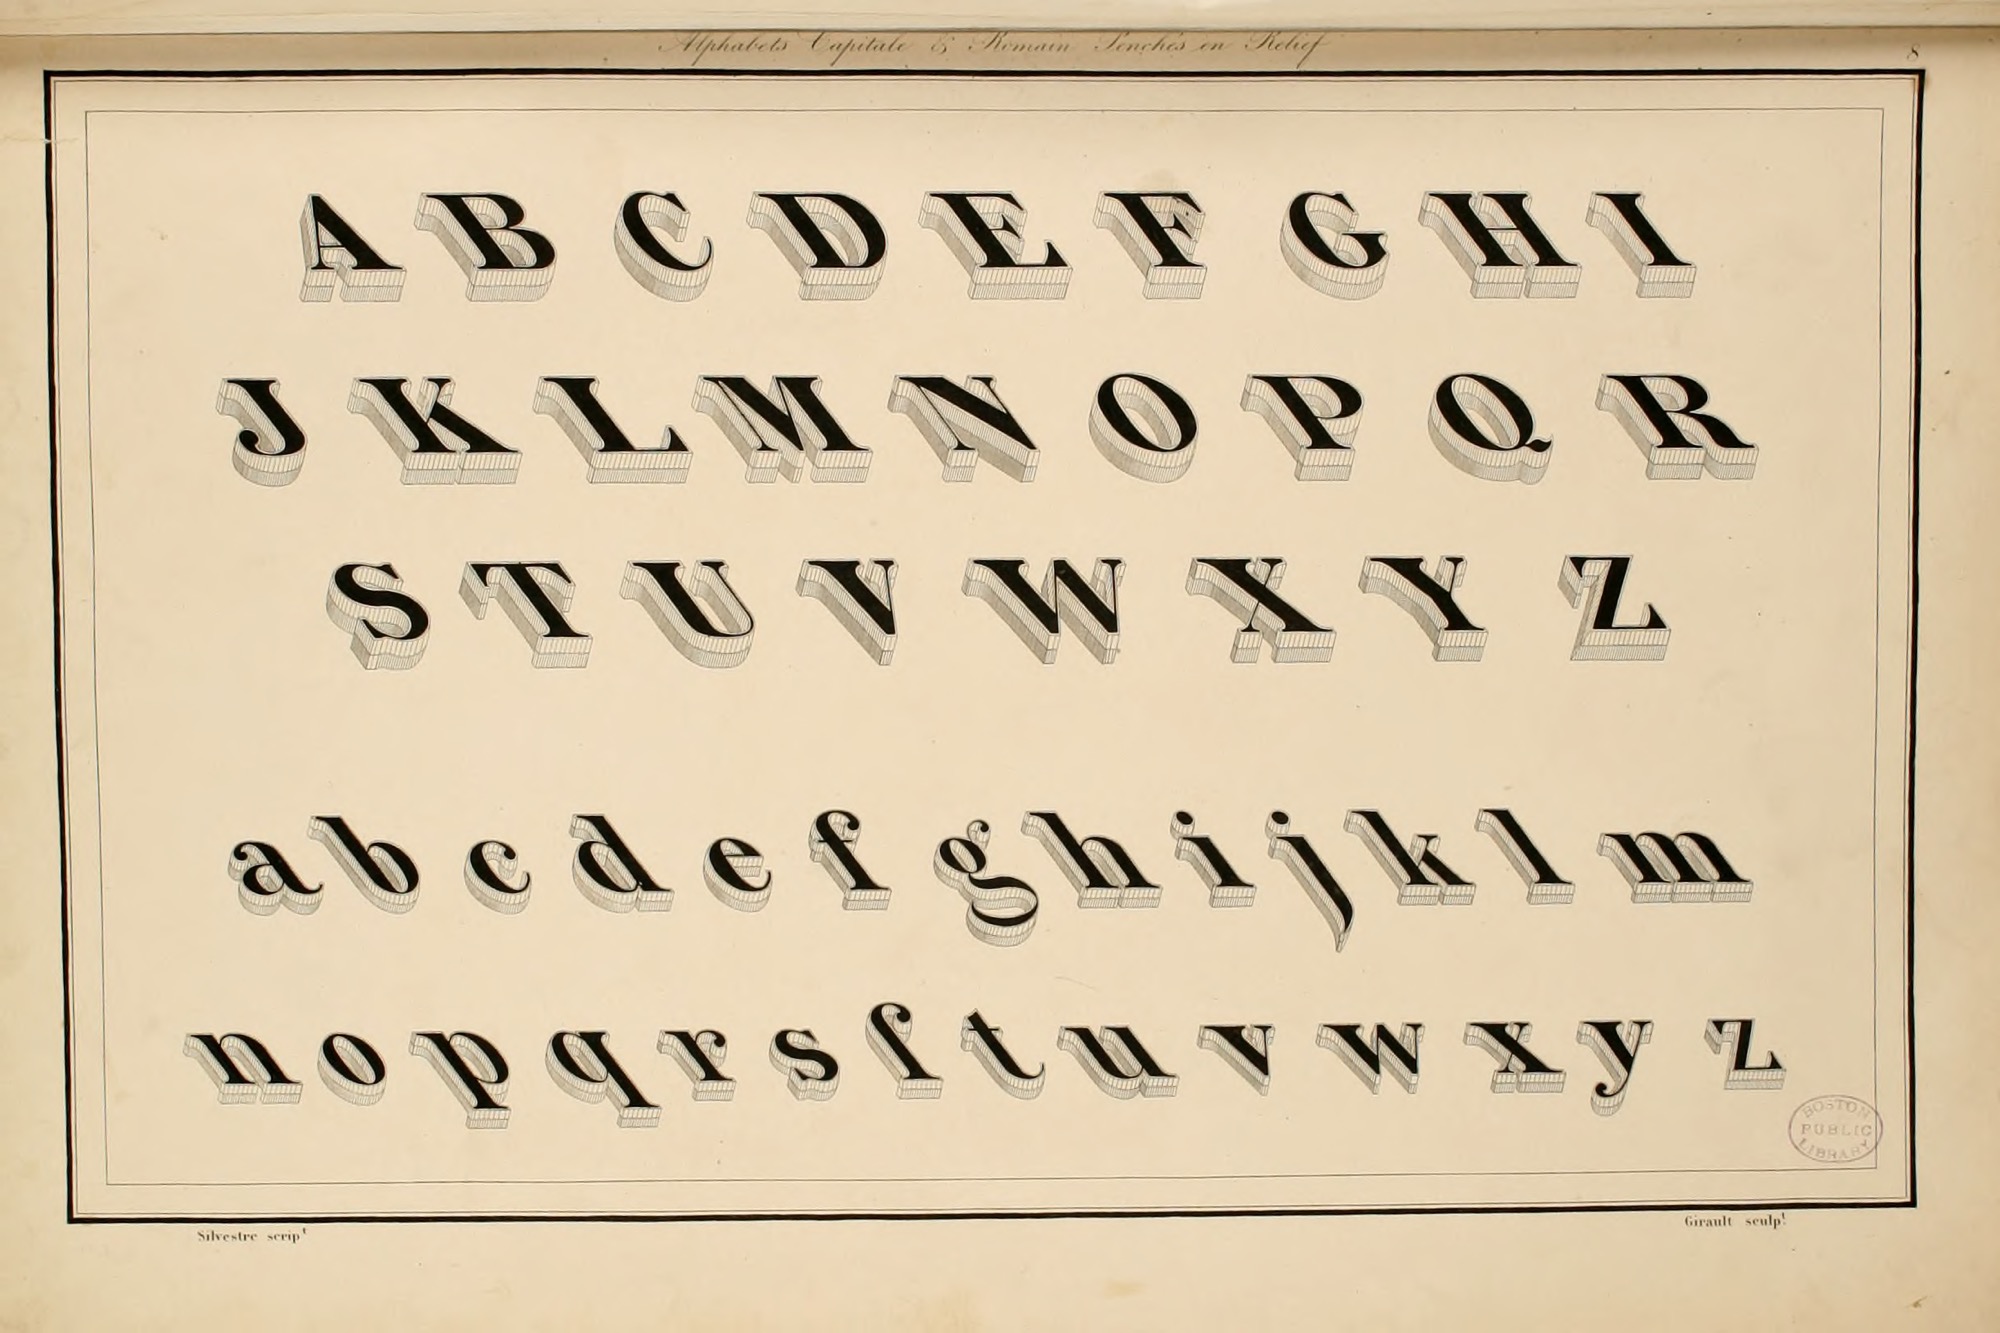 Alphabets Capitale & Romain Penchés en Relief
8
A B C D E F G H I
J K L M N O P Q R
S T U V W X Y Z
a b c d e f g h i j k l m
n o p q r s ſ t u v w x y z
BOSTON
PUBLIC
LIBRARY
Silvestre scripᵗ
Girault sculpᵗ.